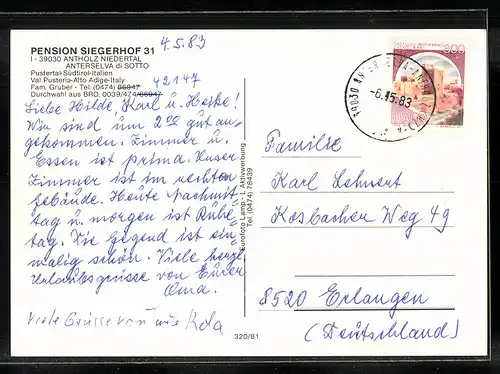 PENSION SIEGERHOF 31
I - 39030 ANTHOLZ NIEDERTAL
ANTERSELVA di SOTTO
Pustertal-Südtirol-Italien
Val Pusteria-Alto Adige-Italy
Fam. Gruber - Tel. (0474) 86947
Durchwahl aus BRD: 0039/474/86947
42147
4.5.83
Liebe Hilde, Karl u. Heike!
Wir sind um 2.00 gut an-
gekommen. Zimmer u.
Essen ist prima. Unser
Zimmer ist im rechten
Gebäude. Heute Nachmit-
tag u. morgen ist Ruhe-
tag. Die Gegend ist ein-
malig schön. Viele herzl.
Urlaubsgrüsse von Eurer
Oma.
Viele Grüsse von
Eurofoto Lamp - l. Aktivwerbung
Tel. (0474) 78439
320/81
300
39030
-6.-5.83
Familie
Karl Lehnert
Kosbacher Weg 49
8520 Erlangen
(Deutschland)